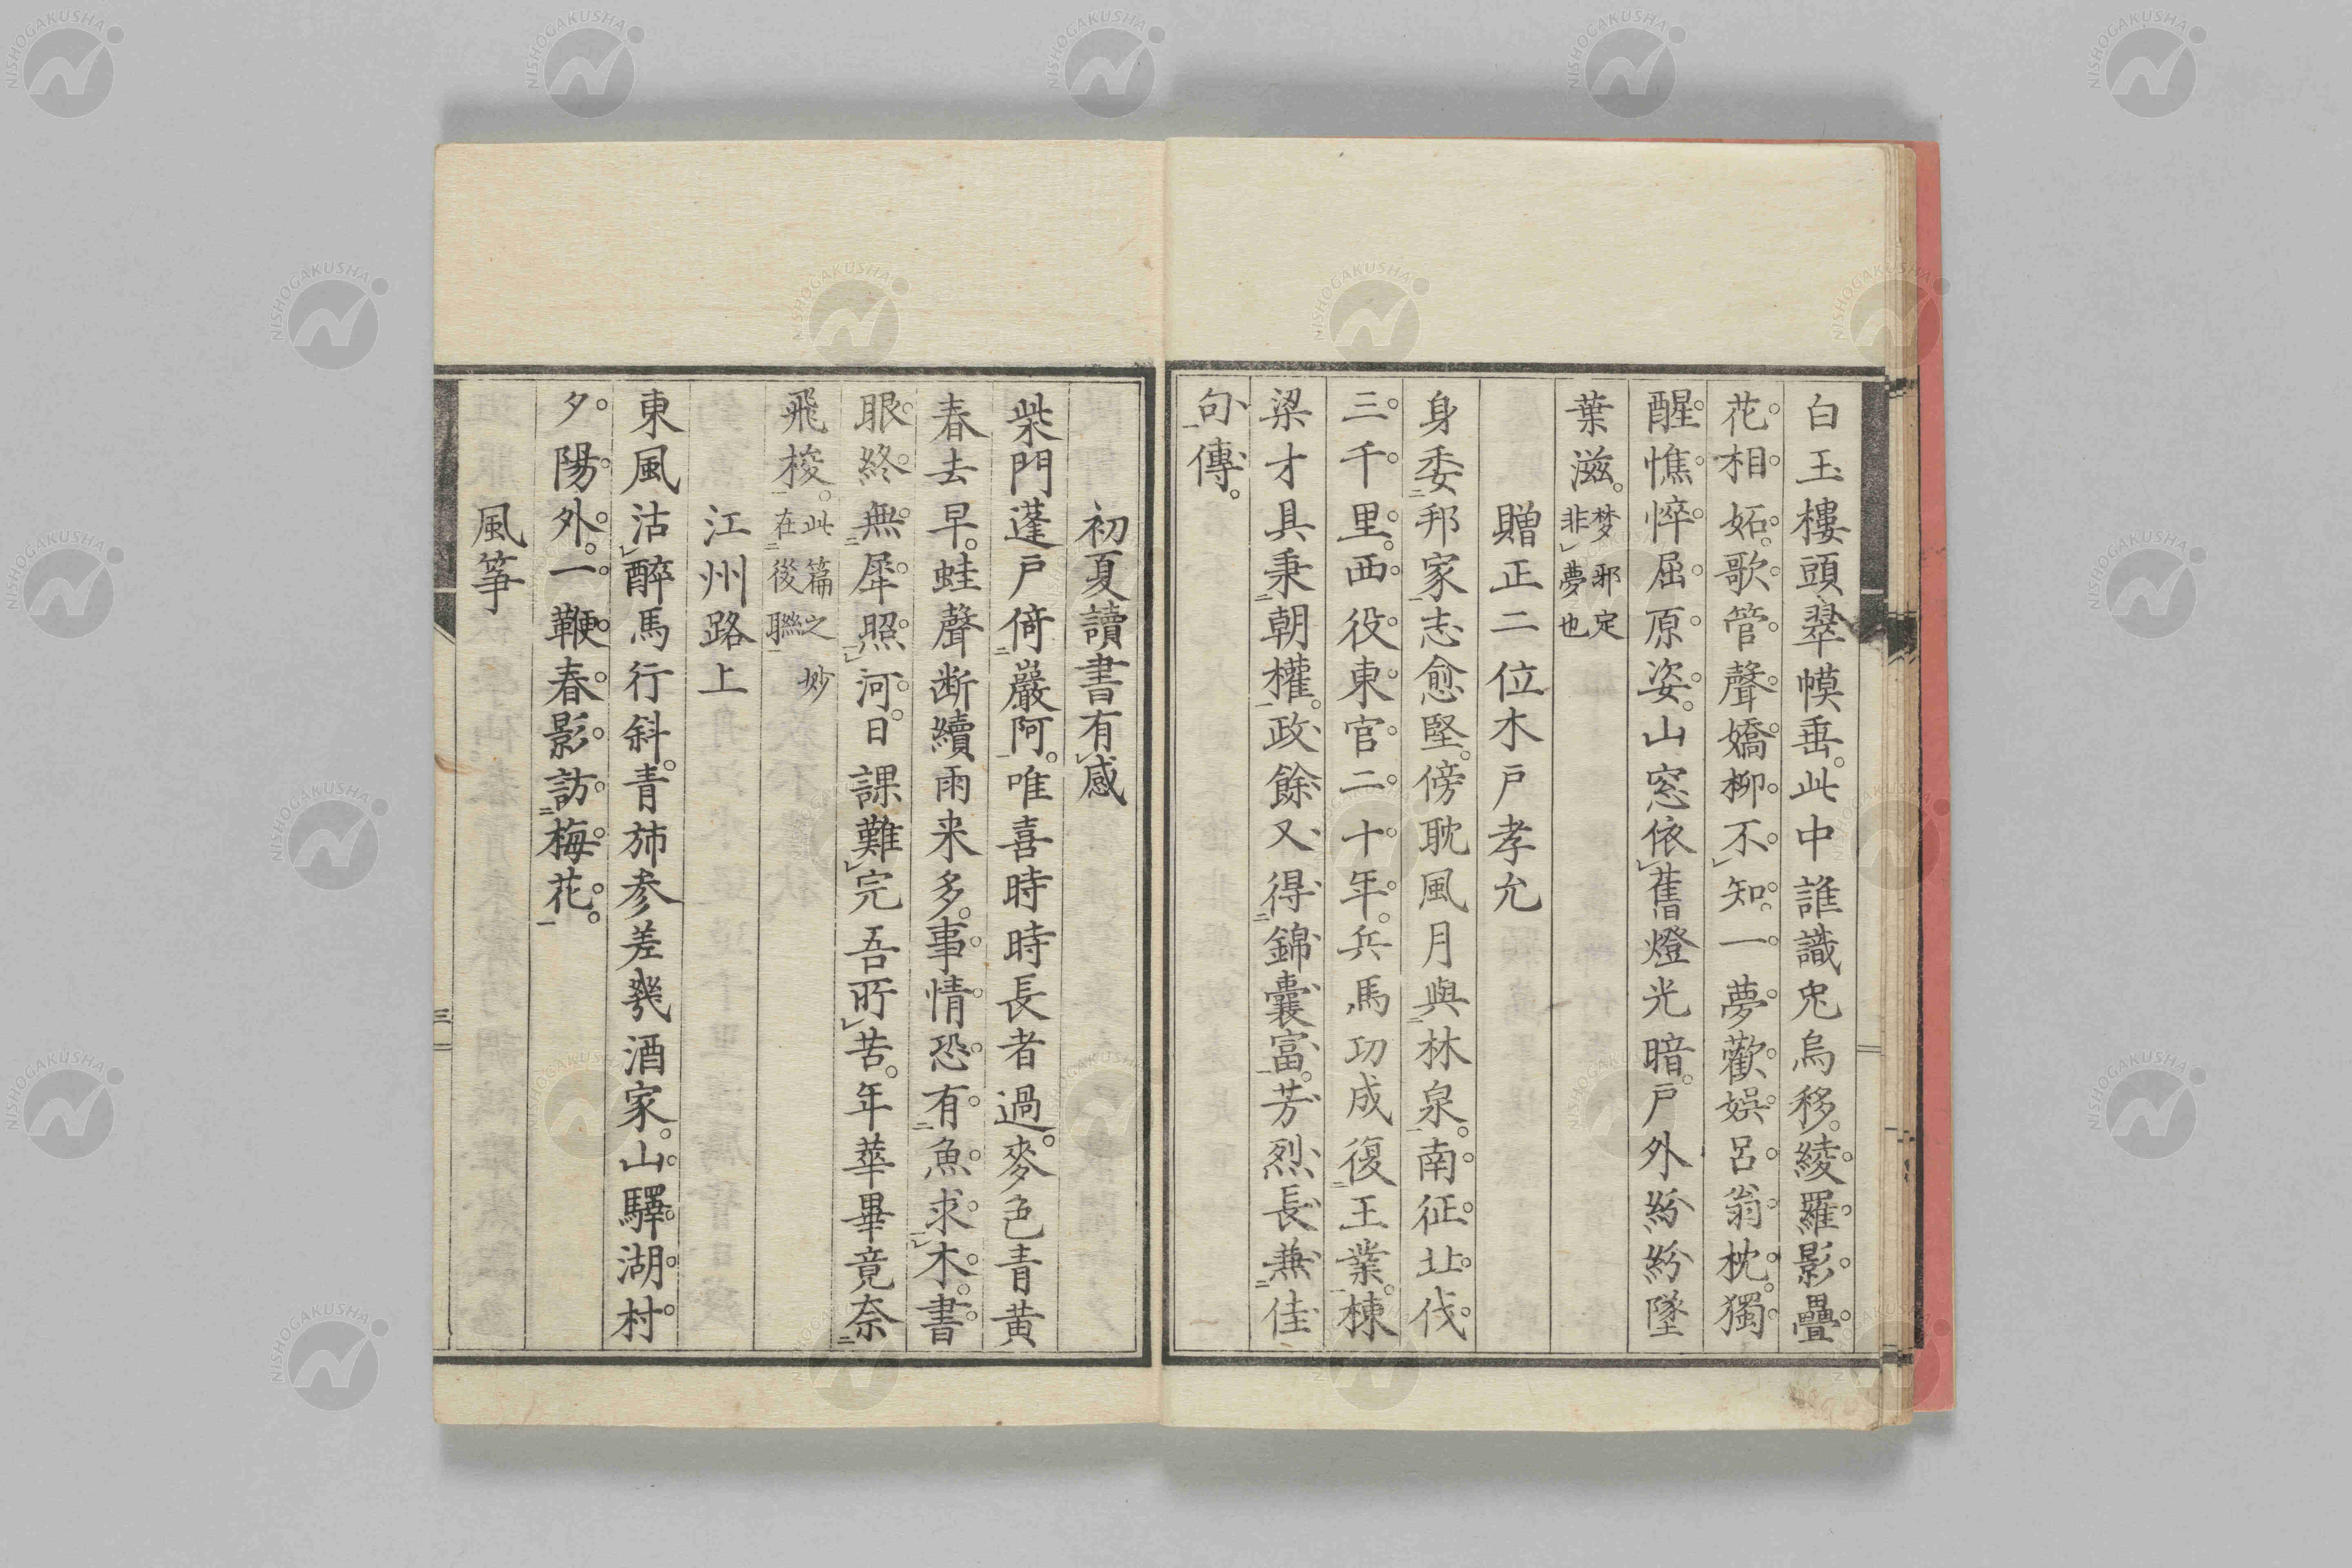 白玉樓頭翠幙垂。此中誰識兔烏移。綾羅影疊
花相妬。歌管聲嬌柳不知。一夢歡娯呂翁枕。獨
醒憔悴屈原姿。山窓依舊燈光暗。戶外紛紛墜
葉滋。梦邪定非夢也
贈正二位木戶孝允
身委邦家志愈堅。傍耽風月與林泉。南征北伐
三千里。西役東官二十年。兵馬功成復王業。棟
梁才具秉朝權。政餘又得錦囊富。芳烈長兼佳
句傳。
初夏讀書有感
柴門蓬戶倚巖阿。唯喜時時長者過。麥色青黃
春去早。蛙聲断續雨来多。事情恐有魚求木。書
眼終無犀照河。日課難完吾所苦。年華畢竟奈
飛梭。此篇之妙在後聯
江州路上
東風沽醉馬行斜。青斾参差幾酒家。山驛湖村
夕陽外。一鞭春影訪梅花。
風箏
三
NISHOGAKUSHA